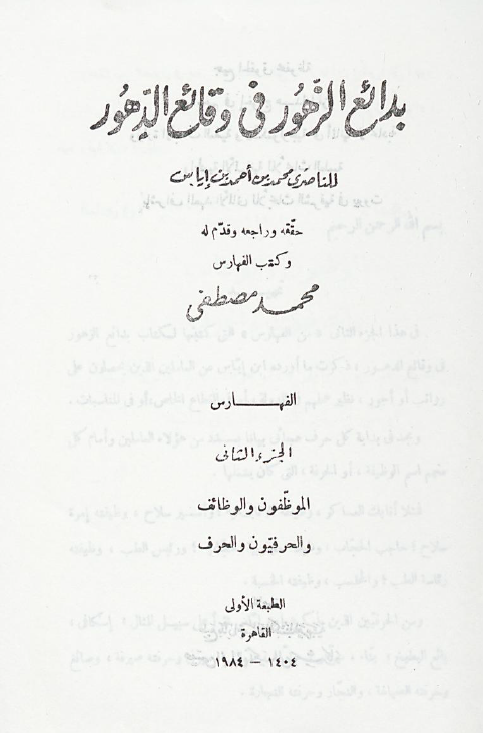 بدائع الزّهور فى وقائع الدّهور
للناصرى محمد بن أحمد بن إياس
حقّقه وراجعه وقدّم له
وكتب الفهارس
محمد مصطفى
الفهـــارس
الجزء الثانى
الموظّفون والوظائف
والحرفيّون والحرف
الطبعة الأولى
القاهرة
١٤٠٤ – ١٩٨٤